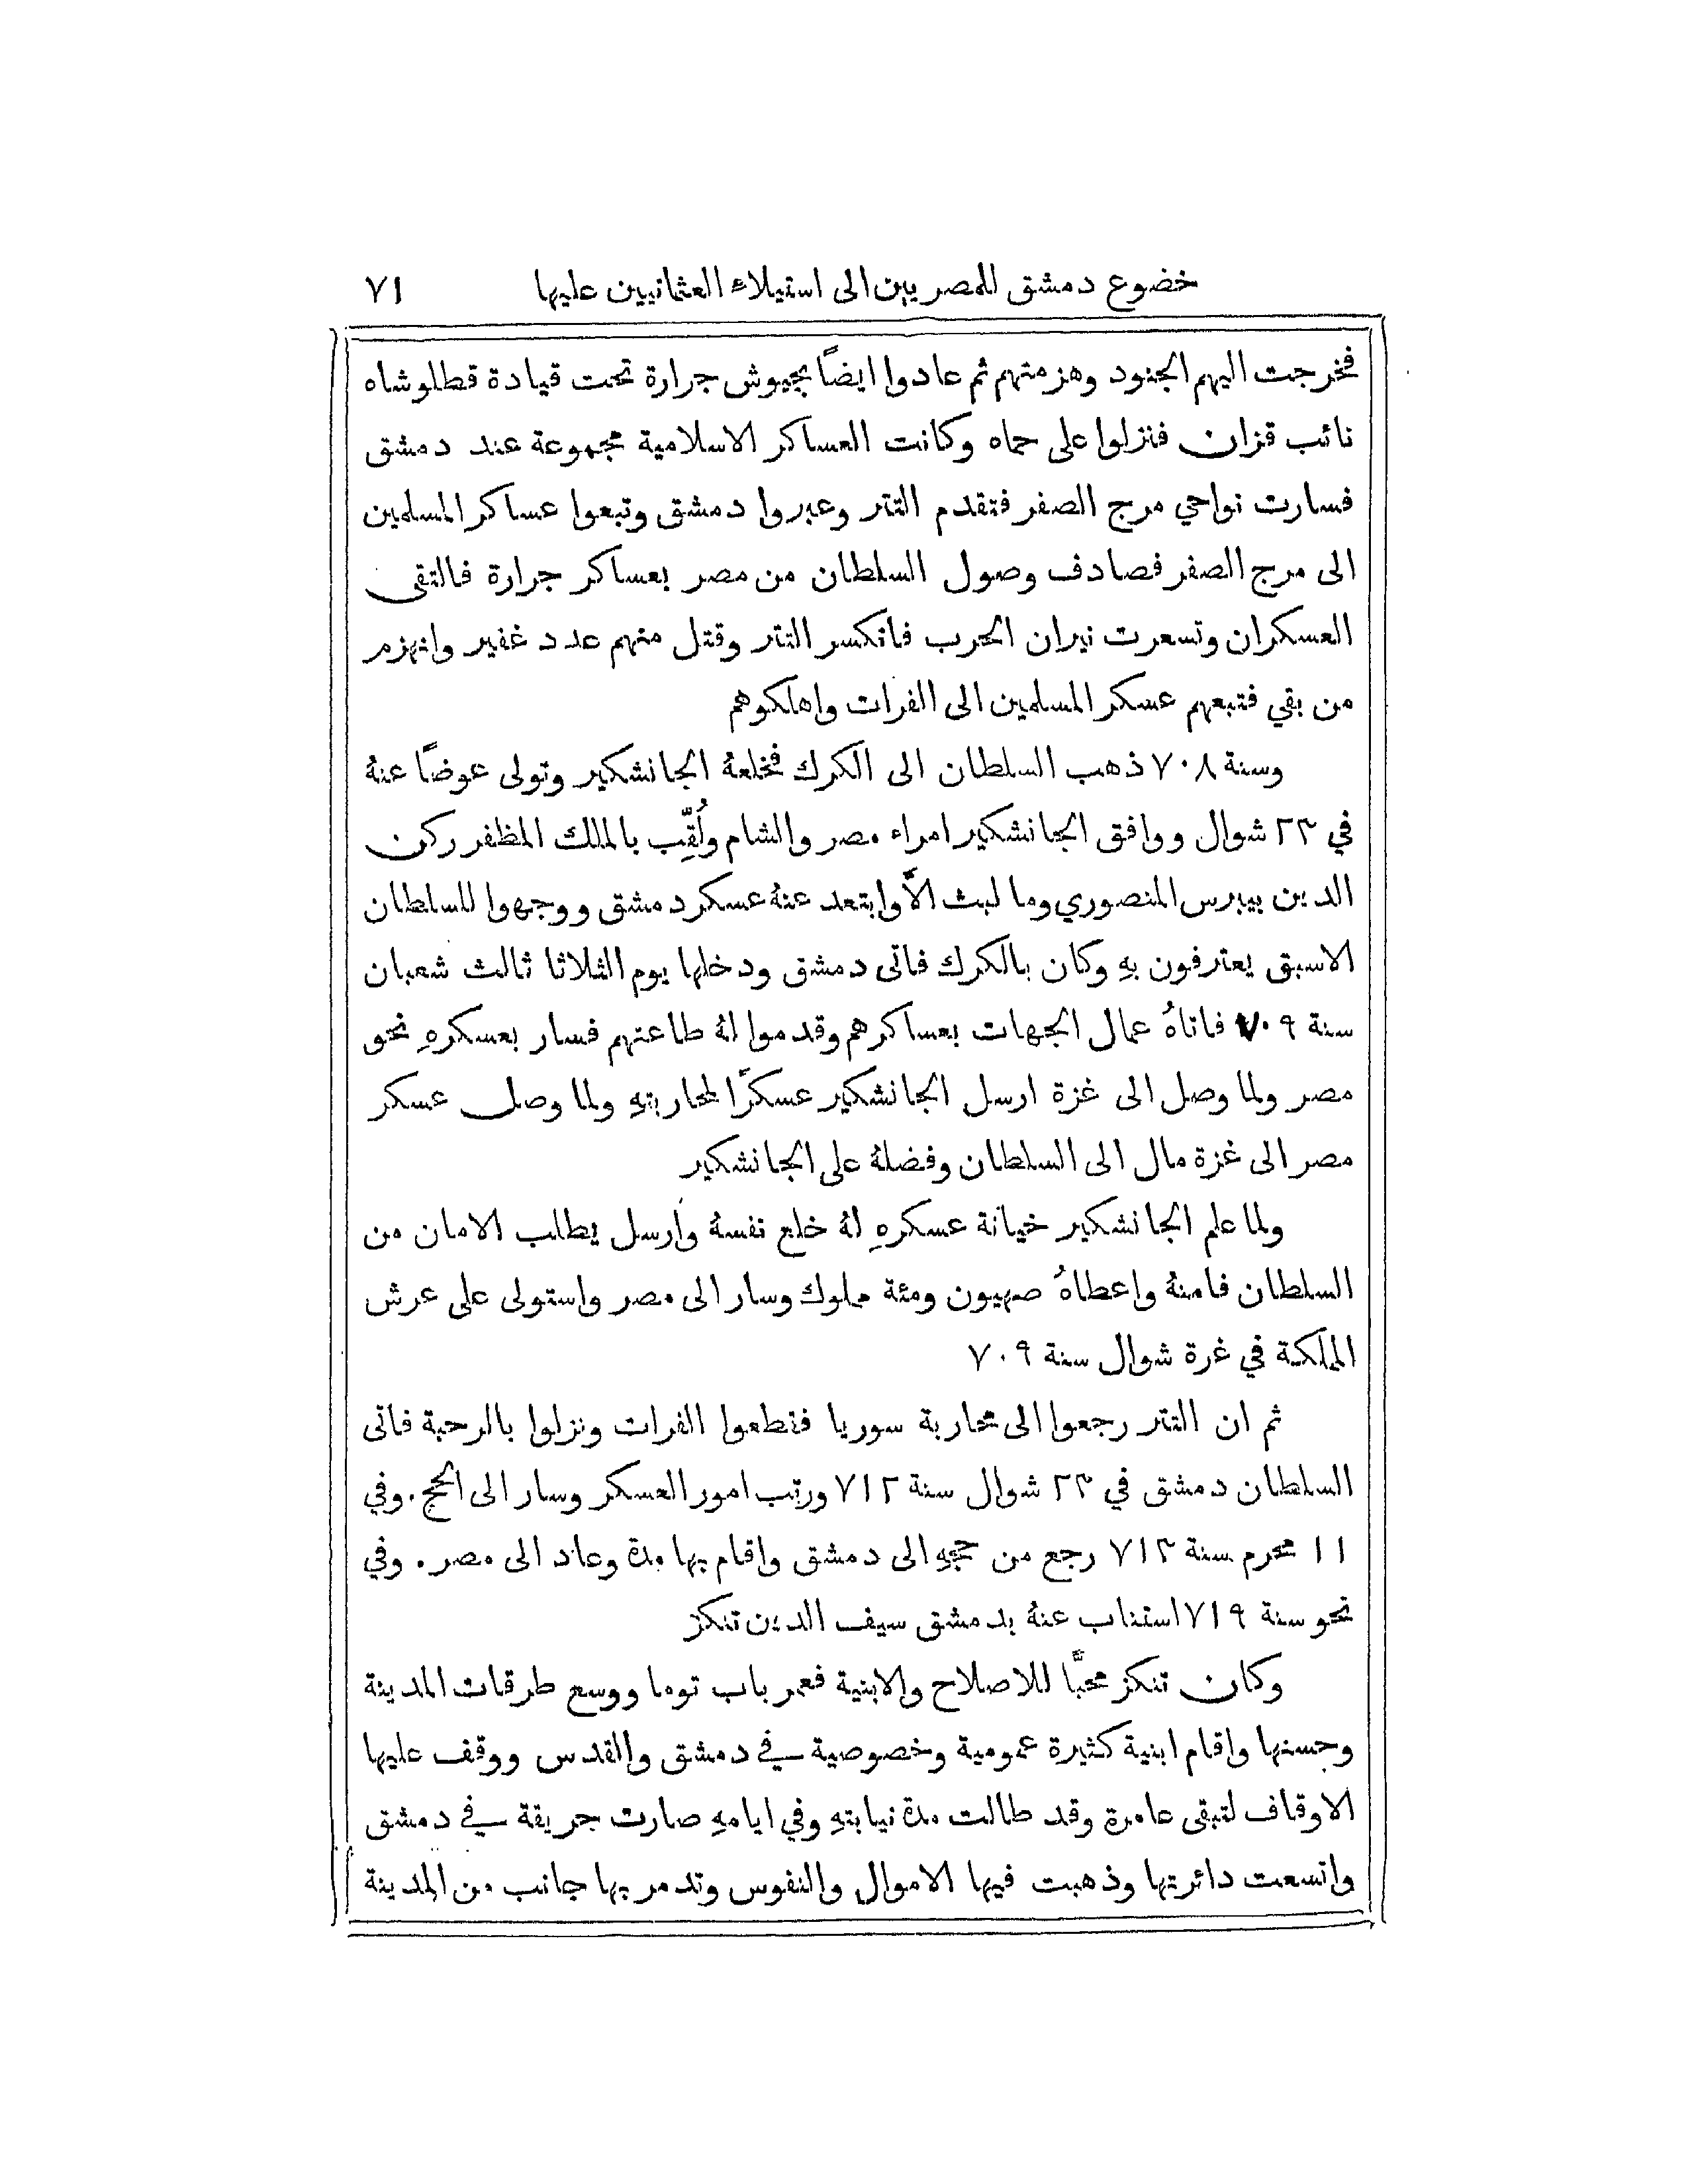 خضوع دمشق للمصريين الى استيلاء العثمانيين عليها ٧١
فخرجت اليهم الجنود وهزمتهم ثم عادوا ايضًا بجيوش جرارة تحت قيادة قطلوشاه
نائب قزان فنزلوا على حماه وكانت العساكر الاسلامية مجموعة عند دمشق
فسارت نواحي مرج الصفر فتقدم التتر وعبروا دمشق وتبعوا عساكر المسلمين
الى مرج الصفر فصادف وصول السلطان من مصر بعساكر جرارة فالتقى
العسكران وتسعرت نيران الحرب فانكسر التتر وقتل منهم عدد غفير وانهزم
من بقي فتبعهم عسكر المسلمين الى الفرات واهلكوهم
وسنة ٧٠٨ ذهب السلطان الى الكرك فخلعهُ الجانشكير وتولى عوضًا عنهُ
في ٢٣ شوال ووافق الجانشكير امراء مصر والشام ولُقِّب بالملك المظفر ركن
الدين بيبرس المنصوري وما لبث الاَّ وابتعد عنهُ عسكر دمشق ووجهوا للسلطان
الاسبق يعترفون بهِ وكان بالكرك فاتى دمشق ودخلها يوم الثلاثا ثالث شعبان
سنة ٧٠٩ فاتاهُ عمال الجهات بعساكرهم وقدموا لهُ طاعتهم فسار بعسكرهِ نحو
مصر ولما وصل الى غزة ارسل الجانشكير عسكرًا لمحاربتهِ ولما وصل عسكر
مصر الى غزة مال الى السلطان وفضلهُ على الجانشكير
ولما علم الجانشكير خيانة عسكرهِ لهُ خلع نفسهُ وارسل يطلب الامان من
السلطان فامنهُ واعطاهُ صهيون ومئة مملوك وسار الى مصر واستولى على عرش
المملكة في غرة شوال سنة ٧٠٩
ثم ان التتر رجعوا الى محاربة سوريا فقطعوا الفرات ونزلوا بالرحبة فاتى
السلطان دمشق في ٢٣ شوال سنة ٧١٢ ورتب امور العسكر وسار الى الحج. وفي
١١ محرم سنة ٧١٣ رجع من حجهِ الى دمشق واقام بها مدة وعاد الى مصر. وفي
نحو سنة ٧١٩ استناب عنهُ بدمشق سيف الدين تنكز
وكان تنكز محبًّا للاصلاح والابنية فعمر باب توما ووسع طرقات المدينة
وحسنها واقام ابنية كثيرة عمومية وخصوصية في دمشق والقدس ووقف عليها
الاوقاف لتبقى عامرة وقد طالت مدة نيابتهِ وفي ايامهِ صارت حريقة في دمشق
واتسعت دائرتها وذهبت فيها الاموال والنفوس وتدمر بها جانب من المدينة